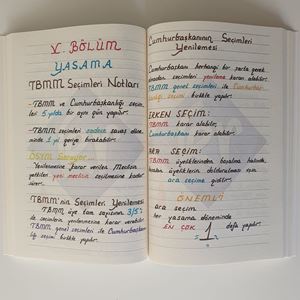 V. BÖLÜM
YASAMA
TBMM Seçimleri Notları
-TBMM ve Cumhurbaşkanlığı seçim-
leri 5 yılda bir aynı gün yapılır.
-TBMM seçimleri sadece savaş dilee
inde 1 yıl geriye bırakabilir.
ÖSYM Soruyor...
Yenilenmesine karar verilen Meclisin
yetkileri yeni meclisin seçilmesine kadar
sürer.
TBMM'nin Seçimleri Yenilemesi
TBMM üye tam sayısının 3/5'i
ile seçimlerin yenilenmesine karar verebilir.
TBMM genel seçimleri ile Cumhurbaşkan-
lığı seçimi birlikte yapılır.
Cumhurbaşkanının Seçimleri
Yenilemesi
Cumhurbaşkanı herhangi bir şarta gerek
olmadan seçimleri yenileme kararı alabilir.
TBMM genel seçimleri ile Cumhurbaş-
kanlığı seçimi birlikte yapılır.
ERKEN SEÇİM:
TBMM kararı alabilir.
Cumhurbaşkanı kararı alabilir.
ARA SEÇİM:
TBMM üyeliklerinden boşalma halinde,
boşalan üyeliklerin doldurulması için
ara seçime gidilir.
ÖNEMLİ
ara seçim
her yasama döneminde
EN ÇOK 1 defa yapılır.